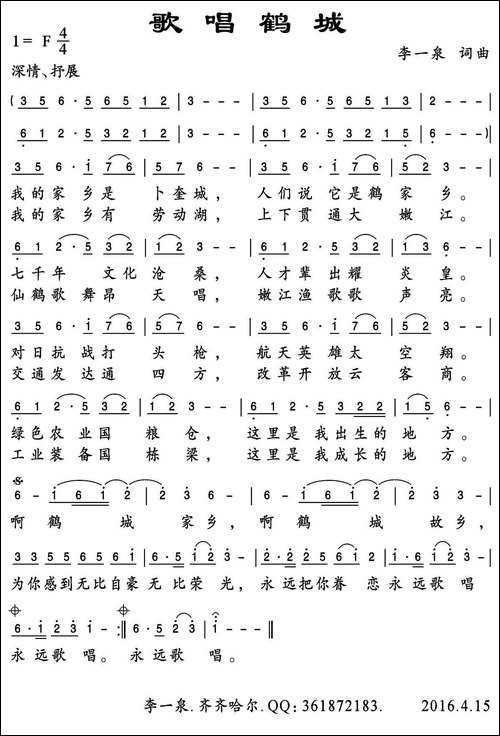 歌唱鹤城
1= F 4/4
李一泉 词曲
深情、抒展
(3 5 6 · 5 6 5 1 2 | 3 - - - | 3 5 6 · 5 6 5 1 3 | 2 - - - |
6 1 2 · 5 3 2 1 2 | 3 - - - | 6 1 2 · 5 3 2 1 5 | 6 - - - )
3 5 6 · i 7 6 | 5 7 6 - - | 3 5 6 · i 7 6 | 5 6 3 - - |
我的家乡是 卜奎城， 人们说它是鹤家乡。
我的家乡有 劳动湖， 上下贯通大 嫩江。
6 1 2 · 5 3 2 | 1 2 3 - - | 6 1 2 · 5 3 2 | 1 5 6 - - |
七千年 文化沧桑， 人才辈出耀 炎皇。
仙鹤歌舞昂 天唱， 嫩江渔歌歌 声亮。
3 5 6 · i 7 6 | 5 7 6 - - | 3 5 6 · i 7 6 | 5 6 3 - - |
对日抗战打 头枪， 航天英雄太 空翔。
交通发达通 四方， 改革开放云 客商。
6 1 2 · 5 3 2 | 1 2 3 - - | 6 1 2 · 5 3 2 2 | 1 5 6 - - |
绿色农业国 粮仓， 这里是我出生的地方。
工业装备国 栋梁， 这里是我成长的地方。
6 - i 6 i 2 | 2 3 6 - | 6 - i 6 i 2 | 2 2 3 - |
啊鹤 城 家乡，啊鹤 城 故乡，
3 3 5 6 5 6 6 i | 6 · 5 i 3 - | 2 · 2 2 5 5 3 | 6 · 6 i 2 3 |
为你感到无比自豪无比荣光，永远把你眷恋永远歌唱
6 · i 2 3 i - :‖ 6 · 5 2 3 | i - - - ‖
永远歌唱。永远歌唱。
李一泉.齐齐哈尔.QQ:361872183. 2016.4.15